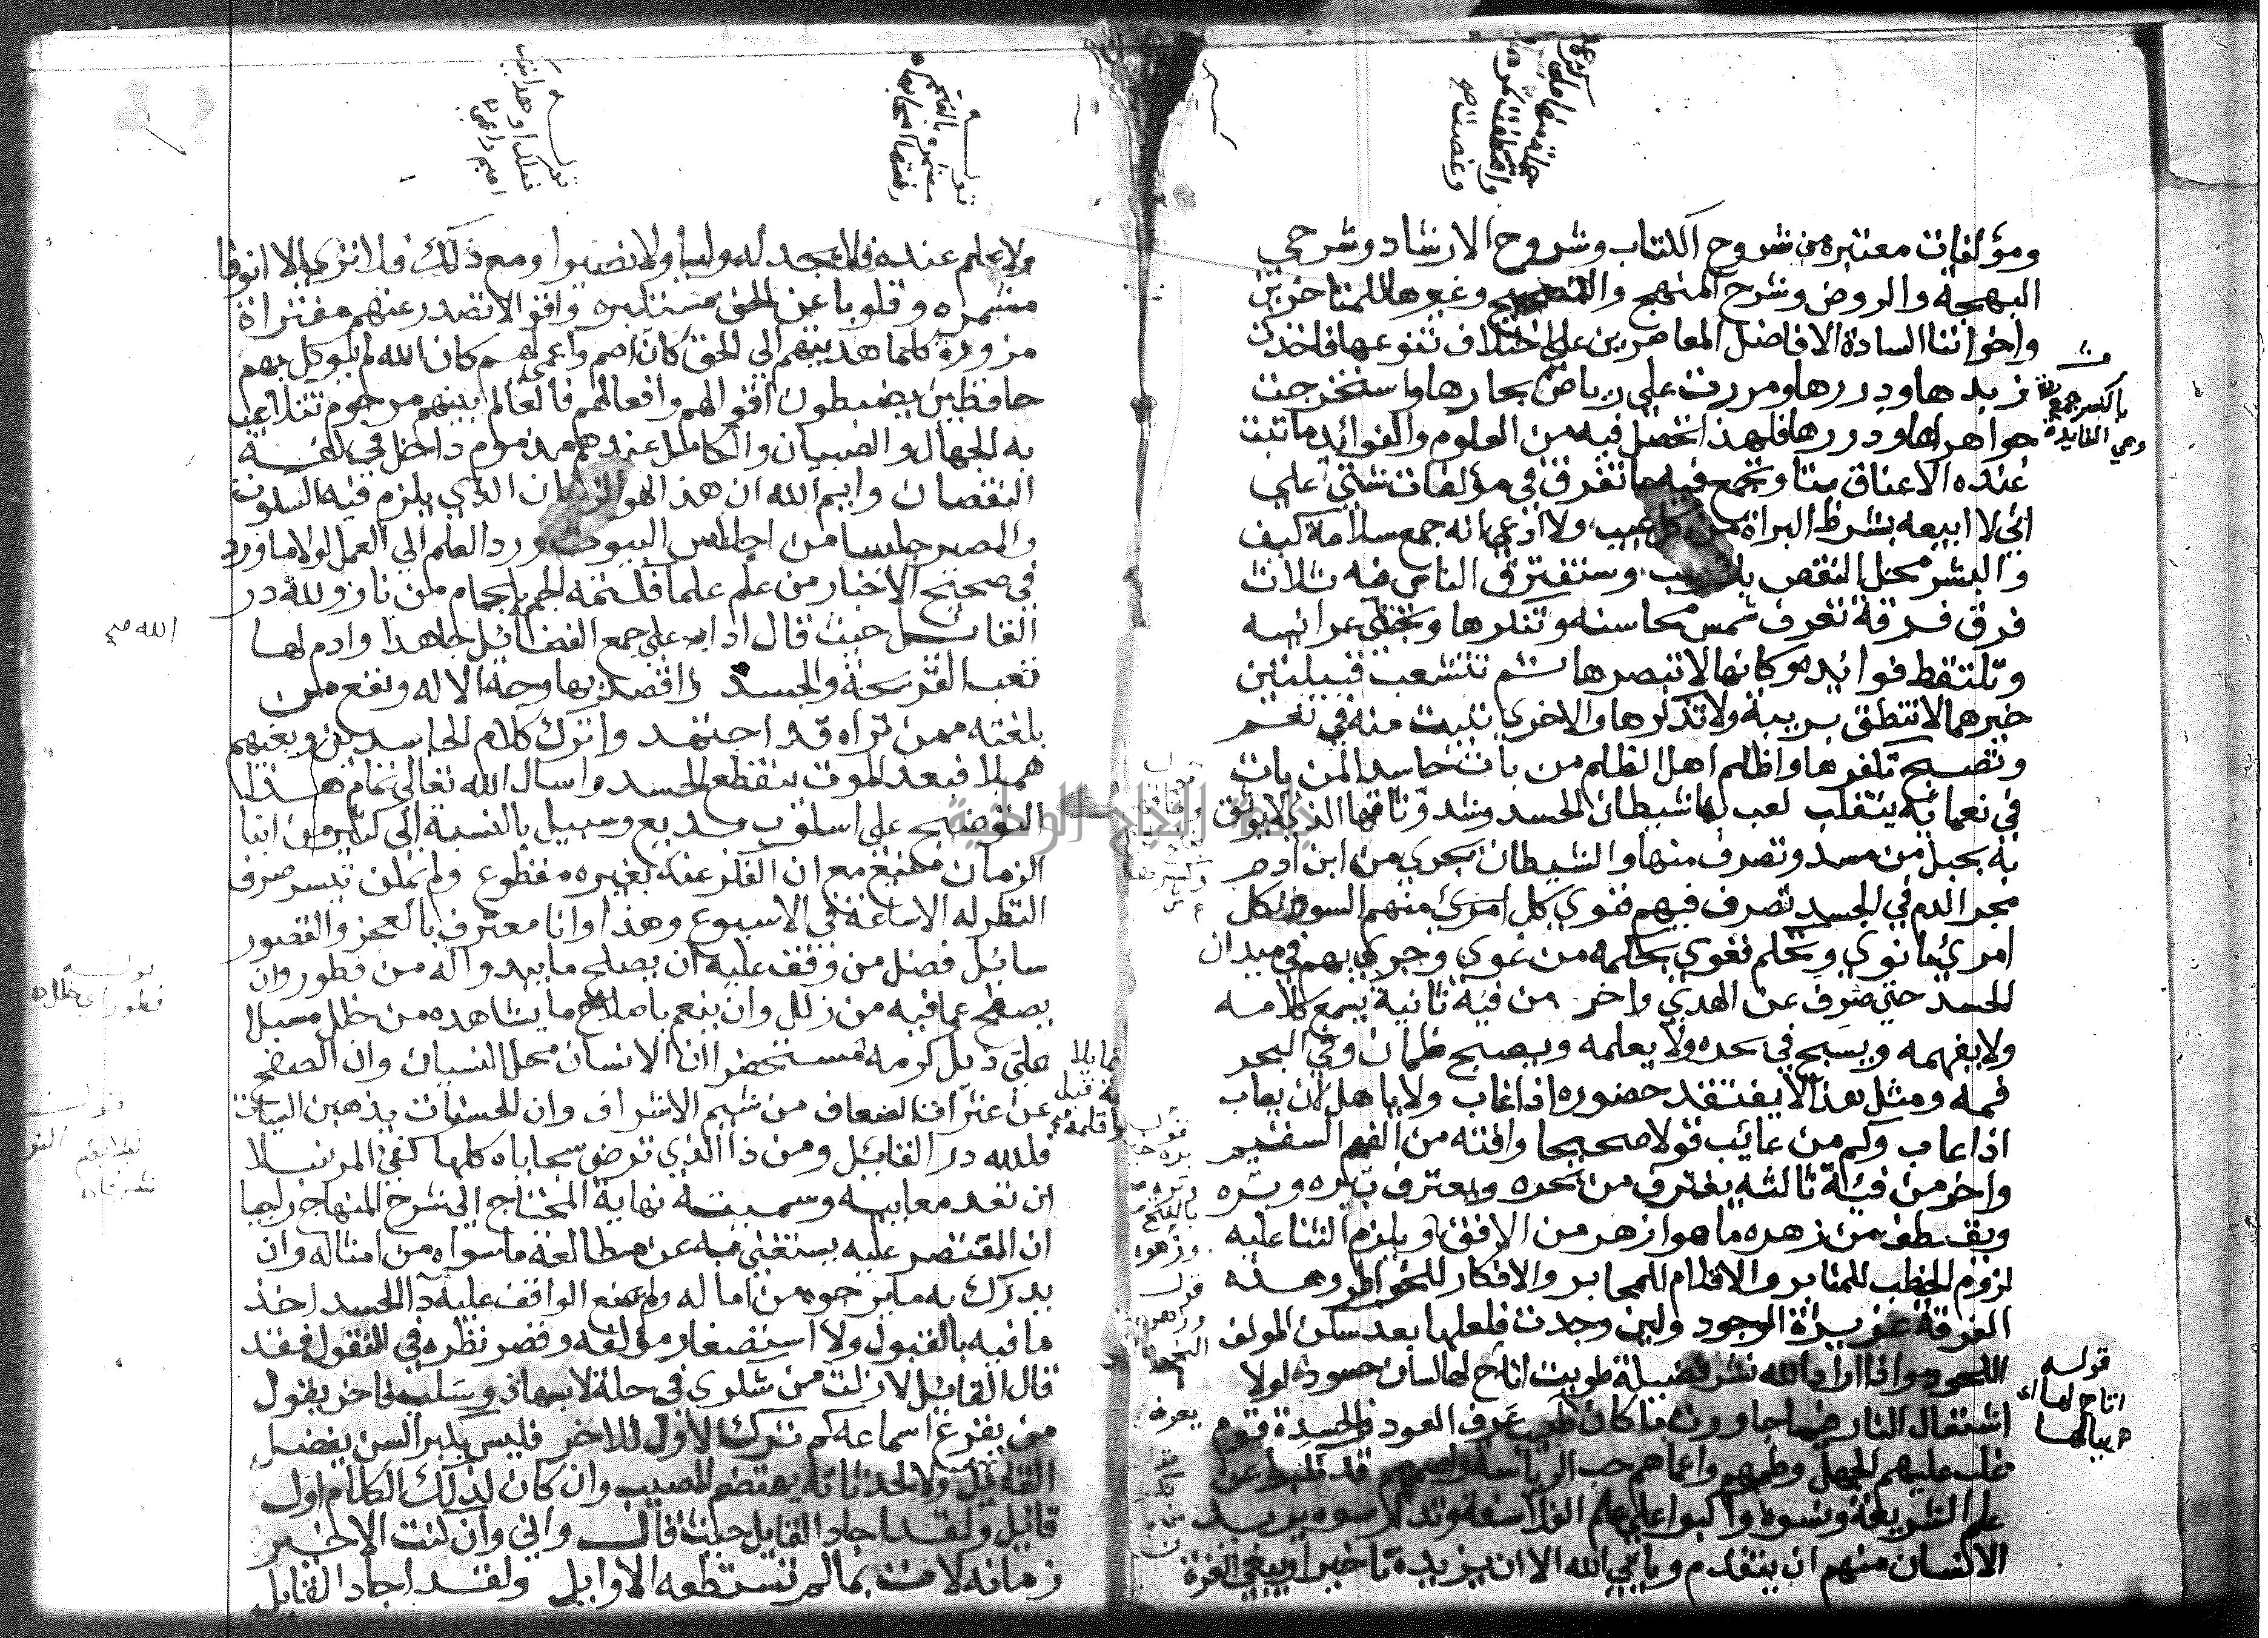 ومؤلفات معتبره من شروح الكتاب وشروح الارشاد وشرحي
البهجة والروض وشرح المنهج والتصحيح وغيرها للمتاخرين
واخواننا السادة الافاضل المعاصرين على اختلاف تنوعها فاخذت
زبدها ودررها ومررت على رياض بحارها واستخرجت
جواهرها ودررها فلهذا تحصل فيه من العلوم والفوائد ما ثبتت
عنده الاعناق بتا وتجمع فيه ما تفرق في مؤلفات شتى على
اني لا ابيعه بشرط البراة من كل عيب ولا ادعي انه جمع سلامة كيف
والبشر محل النقص بلا ريب وستفترق الناس فيه ثلاث
فرق فرقة تعرف شمس محاسنه وتنكرها وتجتلي عرائسه
وتلتقط فوائده وكانها لا تبصرها ثم تتشعب قبيلتين
خيرهما لا تنطق بريبة ولا تذكرها والاخرى تبيت منه في نعم
وتصبح تكفرها واظلم اهل الظلم من بات حاسدا لمن بات
في نعمائه يتقلب لعب بها شيطان الحسد وشد وثاقها الذي لا يوثق
به بحبل من مسد وتصرف منها والشيطان يجري من ابن ادم
مجرا الدم في الجسد تصرف فيهم فنوي كل امرئ منهم السوء ولكل
امرئ ما نوى وتحلم فغوي بحلمه من غوي وجري بهم في ميدان
الحسد حتى صرف عن الهدي واخر من فئة ثانية يسمع كلامه
ولا يفهمه ويسبح في بحره ولا يعلمه ويصبح ظمان وفي البحر
فمه ومثل هذا لا يفتقد حضوره اذا غاب ولا ياهل ان يعاب
اذا عاب وكم من عائب قولا صحيحا وافته من الفهم السقيم
واخر من فئة ثالثه يغترف من بحره ويعترف ببره وبثره
ويقطف من زهره ما هو ازهر من الافق ويلزم الثنا عليه
لزوم الخطب للمنابر والاقلام للمحابر والافكار للخواطر وهذه
الفرقة عزيزة الوجود ولين وجدت فلعلها بعد سكن المولف
اللحود واذا اراد الله نشر فضيلة طويت اتاح لها لسان حسود لولا
اشتعال النار فيما جاورت ما كان طيب عرف العود فالحسدة قوم
غلب عليهم الجهل وطمهم واعماهم حب الرياسة واصمهم قد نكبوا عن
علم الشريعة ونسوه واكبوا على علم الفلاسفة وتدارسوه يريد
الانسان منهم ان يتقدم ويابي الله الا ان يزيده تاخيرا ويبغي العزة
بالكسر جمع
وهي الفايدة
قوله
اتاح لها اي
هيالها
ولا علم عنده فلا يجد له وليا ولا نصيرا ومع ذلك فلا ترى الا انوفا
مشمره وقلوبا عن الحق مستدبره واقوالا تصدر عنهم مفتراة
مزورة كلما هديتهم الي الحق كان اصم واعمى لهم كان الله لم يوكل بهم
حافظين يضبطون اقوالهم وافعالهم فالعالم بينهم مرجوم تتلاعب
به الجهال والصبيان والكامل عندهم مذموم داخل في كفة
النقصان وايم الله ان هذا لهو الزمان الذي يلزم فيه السكوت
والمصير جليسا من اجلاس البيوت ورد العلم الي العمل لولا ما ورد
في صحيح الاخبار من علم علما فكتمه الجم بلجام من نار ولله در
القائل حيث قال اداب على جمع الفضائل جاهدا وادم لها
تعب القريحة والجسد واقصد بها وجه الاله ونفع من
بلغته ممن تراه قد اجتهد واترك كلام الحاسدين وبغيهم
هملا فبعد الموت ينقطع الحسد واسال الله تعالى تمام هذا
التوضيح على اسلوب بديع وسبيل بالنسبة الى كثير من ابنا
الزمان منيع مع ان الفكر عنه بغيره مقطوع ولم يمكن تيسر صرف
النظر له الا ساعة في الاسبوع وهذا وانا معترف بالعجز والقصور
سائل فضل من وقف عليه ان يصلح ما يبدو له من فطور وان
يصفح عما فيه من زلل وان ينعم باصلاح ما يشاهده من خلل مسبلا
علي ذيل كرمه مستحضرا ان الانسان محل النسيان وان الصفح
عن عثرات الضعاف من شيم الاشراف وان الحسنات يذهبن السيات
فلله در القائل ومن ذا الذي ترضى سجاياه كلها كفى المرء نبلا
ان تعد معايبه وسميته نهاية المحتاج الى شرح المنهاج راجيا
ان المقتصر عليه يستغني به عن مطالعة ما سواه من امثاله وان
يدرك به ما يرجوه من اماله ولم يمنع الواقف عليه داء الحسد اخذ
ما فيه بالقبول ولا استصغار مؤلفه وقصر نظره في النقول فقد
قال القائل لا زلت من شكري في حلة لابسها ذو سلب فاخر يقول
من يقرع اسماعه كم ترك الاول للاخر فليس بكبر السن يفضل
القائل ولا لحدثانه يهتضم المصيب وان كان لذلك الكلام اول
قائل ولقد اجاد القايل حيث قال واني وان كنت الاخير
زمانه لات بما لم تستطعه الاوايل ولقد اجاد القايل